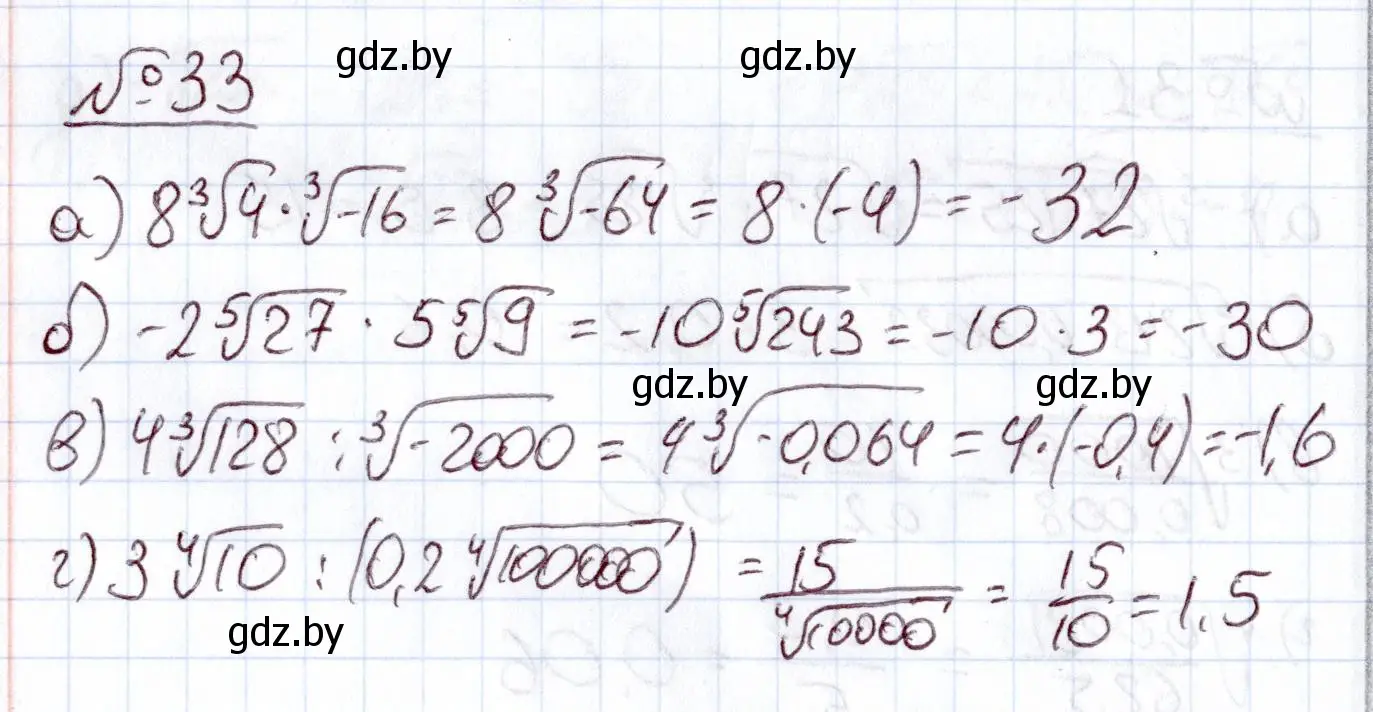 gdz.by gdz.by
№33
а) 8∛4 · ∛-16 = 8∛-64 = 8·(-4) = -32
б) -2⁵√27 · 5⁵√9 = -10⁵√243 = -10·3 = -30
gdz.by gdz.by
в) 4∛128 : ∛-2000 = 4∛-0,064 = 4·(-0,4) = -1,6
г) 3⁴√10 : (0,2⁴√100000) = 15/⁴√10000 = 15/10 = 1,5
gdz.by